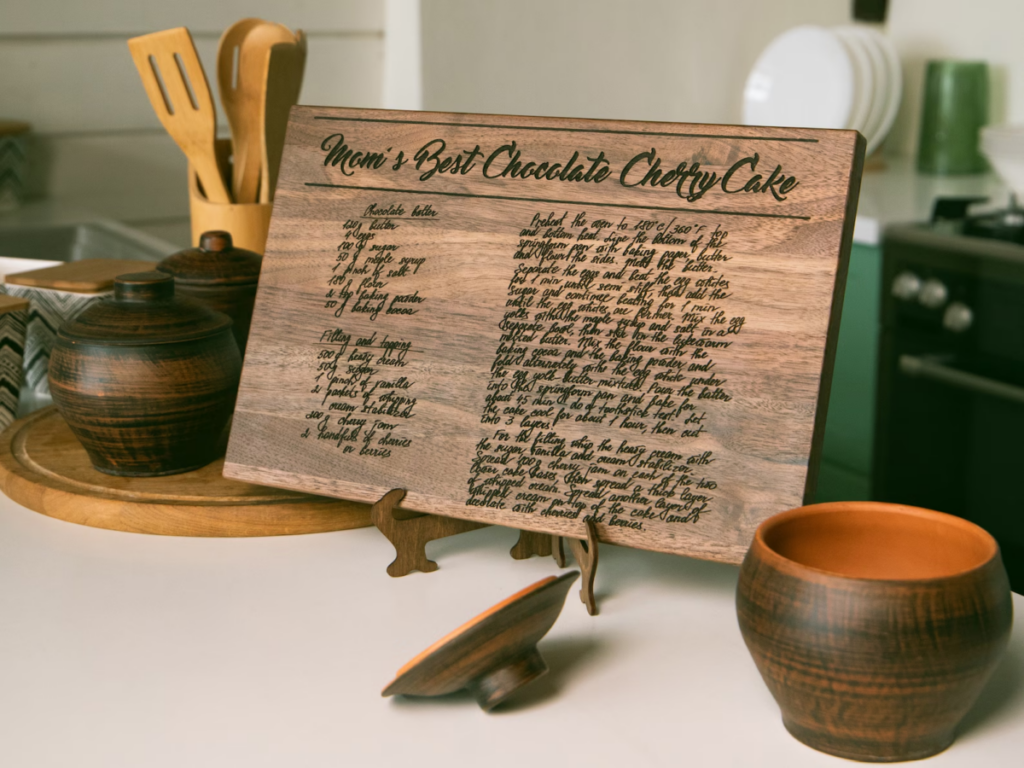 Mom's Best Chocolate Cherry Cake
Chocolate batter
120g butter
4 eggs
100 g sugar
50 g maple syrup
1 pinch of salt
180 g flour
2 tsp baking powder
50 g baking cocoa
Filling and topping
500 g heavy cream
50 g sugar
1 pinch of vanilla
2 packets of whipping
cream stabilizer
300 g cherry jam
2 handfuls of cherries
or berries
Preheat the oven to 180°C/360°F top
and bottom heat. Line the bottom of the
springform pan with baking paper, butter
and flour the sides. Melt the butter.
Separate the eggs and beat the egg whites
for 1 min until semi stiff, then add the
sugar and continue beating for 1 min
until the egg whites are firmer. Mix the egg
yolks with the maple syrup and salt in a
separate bowl, then stir in the lukewarm
melted butter. Mix the flour with the
baking cocoa and the baking powder and
fold alternately with the egg white under
the egg yolk-butter mixture. Pour the batter
into the springform pan and bake for
about 45 min to do a toothpick test. Let
the cake cool for about 1 hour, then cut
into 3 layers
For the filling whip the heavy cream with
the sugar, vanilla and cream stabilizer.
Spread cherry jam on each of the two
lower cake bases, then spread a thick layer
of whipped cream. Spread another layer of
whipped cream on top of the cake and
decorate with cherries or berries.